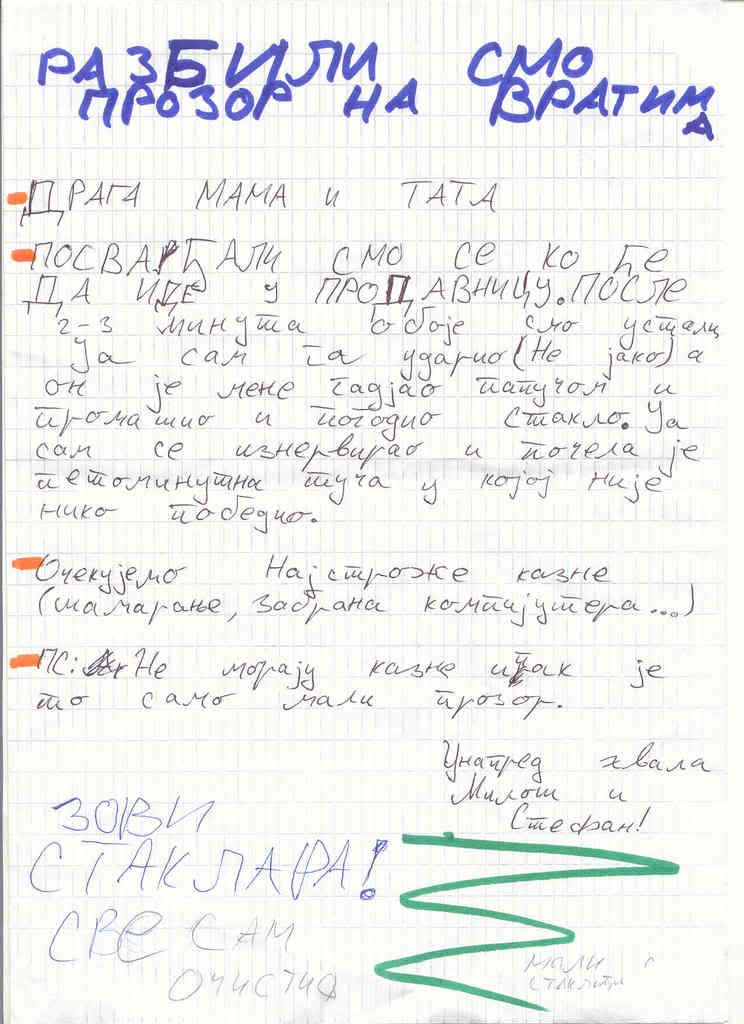 РАЗБИЛИ СМО
ПРОЗОР НА ВРАТИМА
ДРАГА МАМА И ТАТА
ПОСВАЂАЛИ СМО СЕ КО ЋЕ
ДА ИДЕ У ПРОДАВНИЦУ. ПОСЛЕ
2-3 минута обоје смо устали
Ја сам га ударио (Не јако) а
он је мене гађао папучом и
промашио и погодио стакло. Ја
сам се изнервирао и почела је
петоминутна туча у којој није
нико победио.
Очекујемо Најстроже казне
(шамарање, забрана компијутера...)
ПС: Не морају казне ипак је
то само мали прозор.
Унапред хвала
Милош и
Стефан!
ЗОВИ
СТАКЛАРА!
СВЕ САМ
ОЧИСТИО
мали